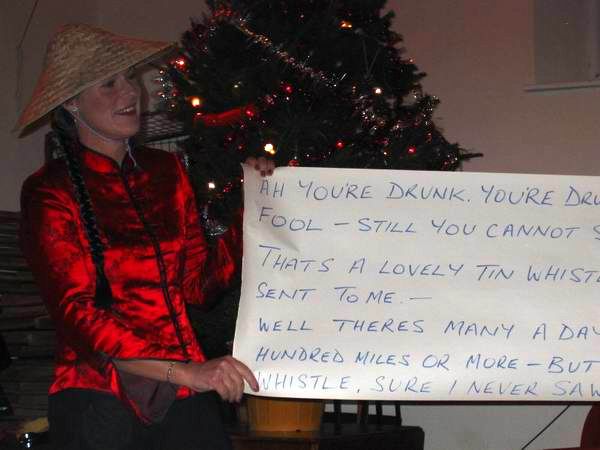 AH YOU'RE DRUNK. YOU'RE
FOOL – STILL YOU CANNOT
THATS A LOVELY TIN
SENT TO ME. –
WELL THERES MANY A DAY
HUNDRED MILES OR MORE – BUT
WHISTLE, SURE I NEVER SAW